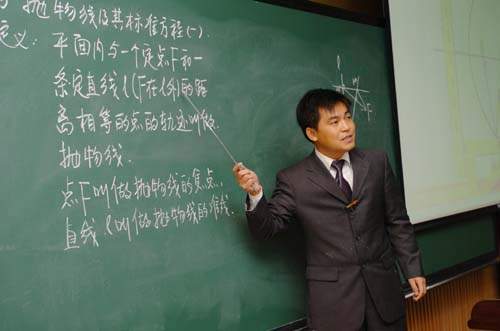 抛物线及其标准方程(一).
定义: 平面内与一个定点F和一
条定直线l(F在l外)的距
离相等的点的轨迹叫做
抛物线.
点F叫做抛物线的焦点.
直线l叫做抛物线的准线.
F